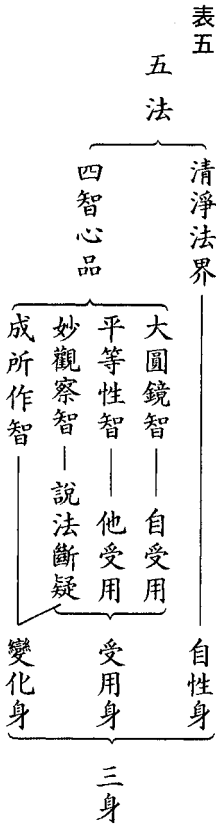 表五
五法
清淨法界——自性身
四智心品
大圓鏡智——自受用
平等性智——他受用
妙觀察智—說法斷疑
成所作智
受用身
變化身
三身